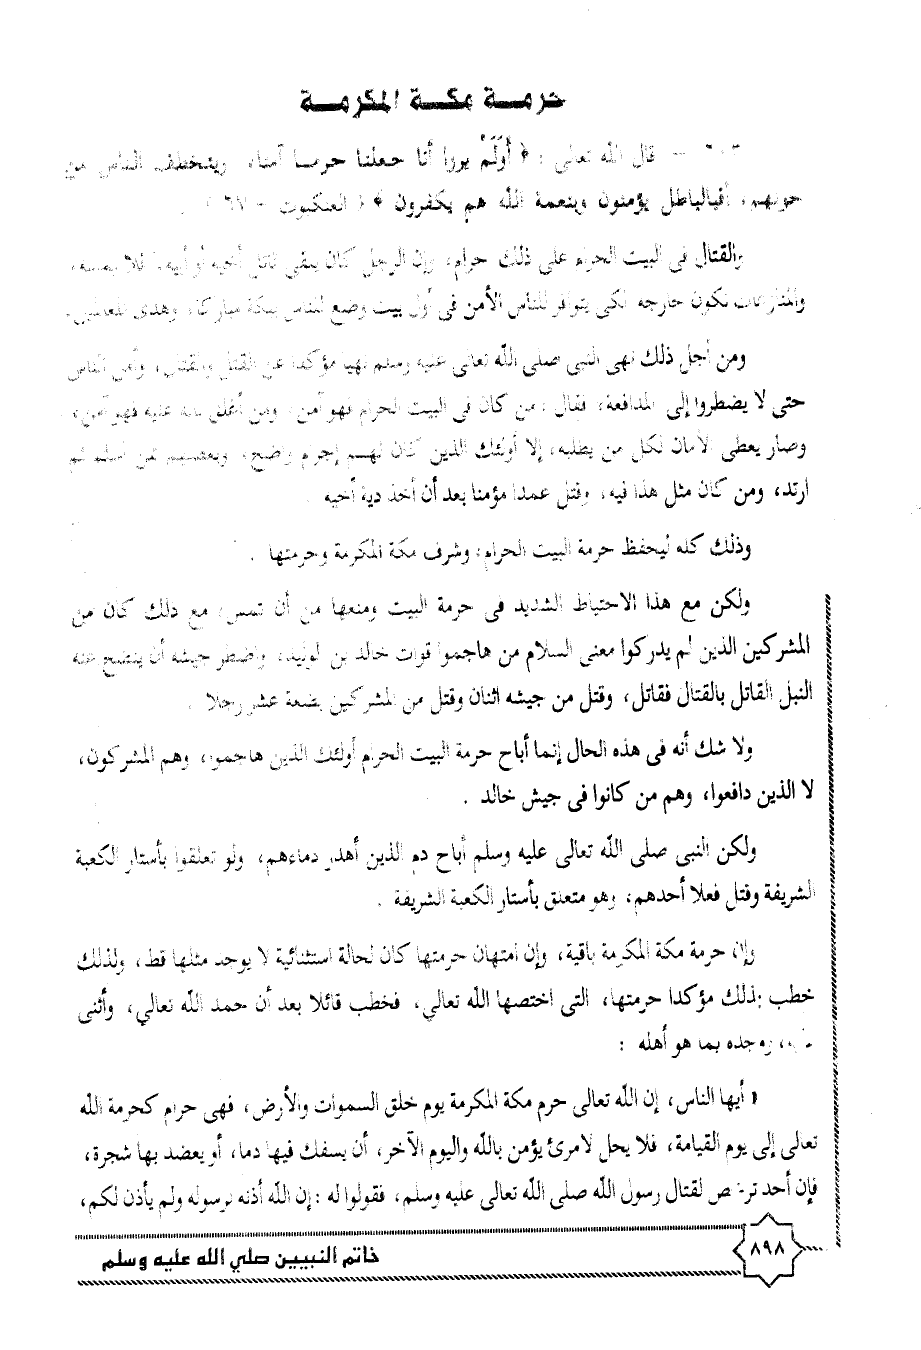 حرمة مكة المكرمة
٦٠٣ – قال الله تعالى : ﴿ أَوَلَمْ يروا أنا جعلنا حرما آمنا، ويتخطف الناس من
حولهم، أفبالباطل يؤمنون وبنعمة الله هم يكفرون ﴾ ( العنكبوت – ٦٧ ) .
والقتال فى البيت الحرام على ذلك حرام، وإن الرجل كان يلقى قاتل أخيه أو أبيه، فلا يمسه،
والمنازعات تكون خارجه لكى يتوافر للناس الأمن فى أول بيت وضع للناس ببكة مباركا، وهدى للعالمين.
ومن أجل ذلك نهى النبى صلى الله تعالى عليه وسلم نهيا مؤكدا عن القتل والقتال، وأمن الناس
حتى لا يضطروا إلى المدافعة، فقال : من كان فى البيت الحرام فهو آمن، ومن أغلق بابه عليه فهو آمن،
وصار يعطى الأمان لكل من يطلبه، إلا أولئك الذين كان لهم إجرام واضح، وبعضهم ممن أسلم ثم
ارتد، ومن كان مثل هذا فيه، وقتل عمدا مؤمنا بعد أن أخذ دية أخيه
وذلك كله ليحفظ حرمة البيت الحرام، وشرف مكة المكرمة وحرمتها .
ولكن مع هذا الاحتياط الشديد فى حرمة البيت ومنعها من أن تمس، مع ذلك كان من
المشركين الذين لم يدركوا معنى السلام من هاجموا قوات خالد بن الوليد، واضطر جيشه أن ينضح عنه
النبل القاتل بالقتال فقاتل، وقتل من جيشه اثنان وقتل من المشركين بضعة عشر رجلا .
ولا شك أنه فى هذه الحال إنما أباح حرمة البيت الحرام أولئك الذين هاجموا، وهم المشركون،
لا الذين دافعوا، وهم من كانوا فى جيش خالد .
ولكن النبى صلى الله تعالى عليه وسلم أباح دم الذين أهدر دماءهم، ولو تعلقوا بأستار الكعبة
الشريفة وقتل فعلا أحدهم، وهو متعلق بأستار الكعبة الشريفة .
وإن حرمة مكة المكرمة باقية، وإن امتهان حرمتها كان لحالة استثنائية لا يوجد مثلها قط، ولذلك
خطب بذلك مؤكدا حرمتها، التى اختصها الله تعالي، فخطب قائلا بعد أن حمد الله تعالي، وأثنى
عليه، ومجده بما هو أهله :
« أيها الناس، إن الله تعالى حرم مكة المكرمة يوم خلق السموات والأرض، فهى حرام كحرمة الله
تعالى إلى يوم القيامة، فلا يحل لامرئ يؤمن بالله واليوم الآخر، أن يسفك فيها دما، أو يعضد بها شجرة،
فإن أحد ترخص لقتال رسول الله صلى الله تعالى عليه وسلم، فقولوا له : إن الله أذنه لرسوله ولم يأذن لكم،
٨٩٨
خاتم النبيين صلي الله عليه وسلم